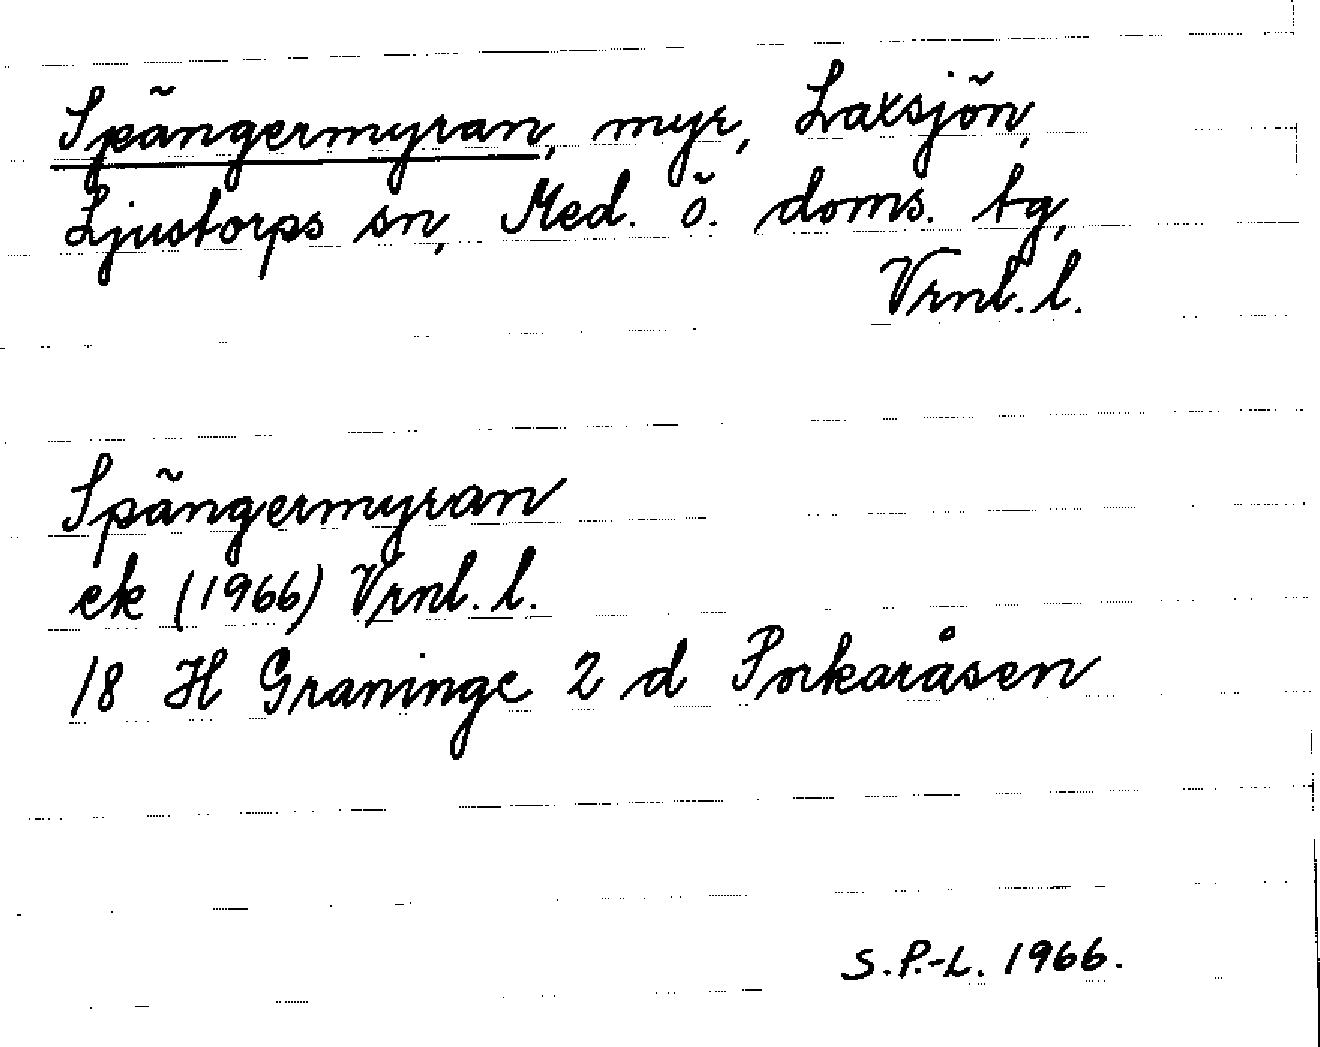 Spängermyran, myr, Laxsjön,
Ljustorps sn, Med. ö. doms. tg,
Vrnl. l.
Spängermyran
ek (1966) Vrnl. l.
18 H Graninge 2 d Porkaråsen
S.P.-L. 1966.